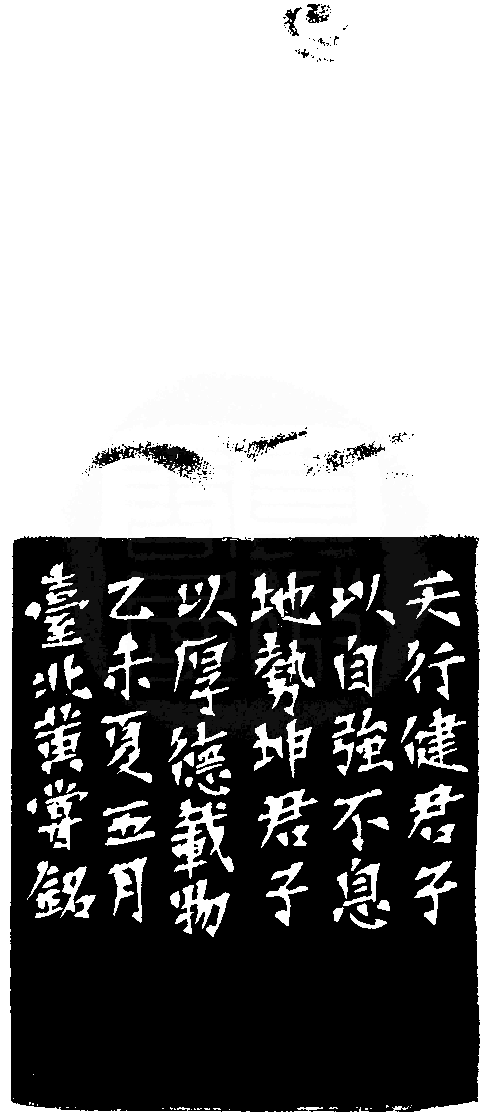 天行健君子
以自強不息
地勢坤君子
以厚德載物
乙未夏五月
臺北黃嘗銘